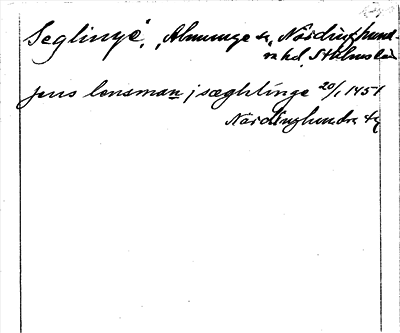 Seglinge, Almunge sn, Närdinghund
m hd, Sthlms län
jens lensman j sæghlinge 20/1 1451
Närdinghundra hd